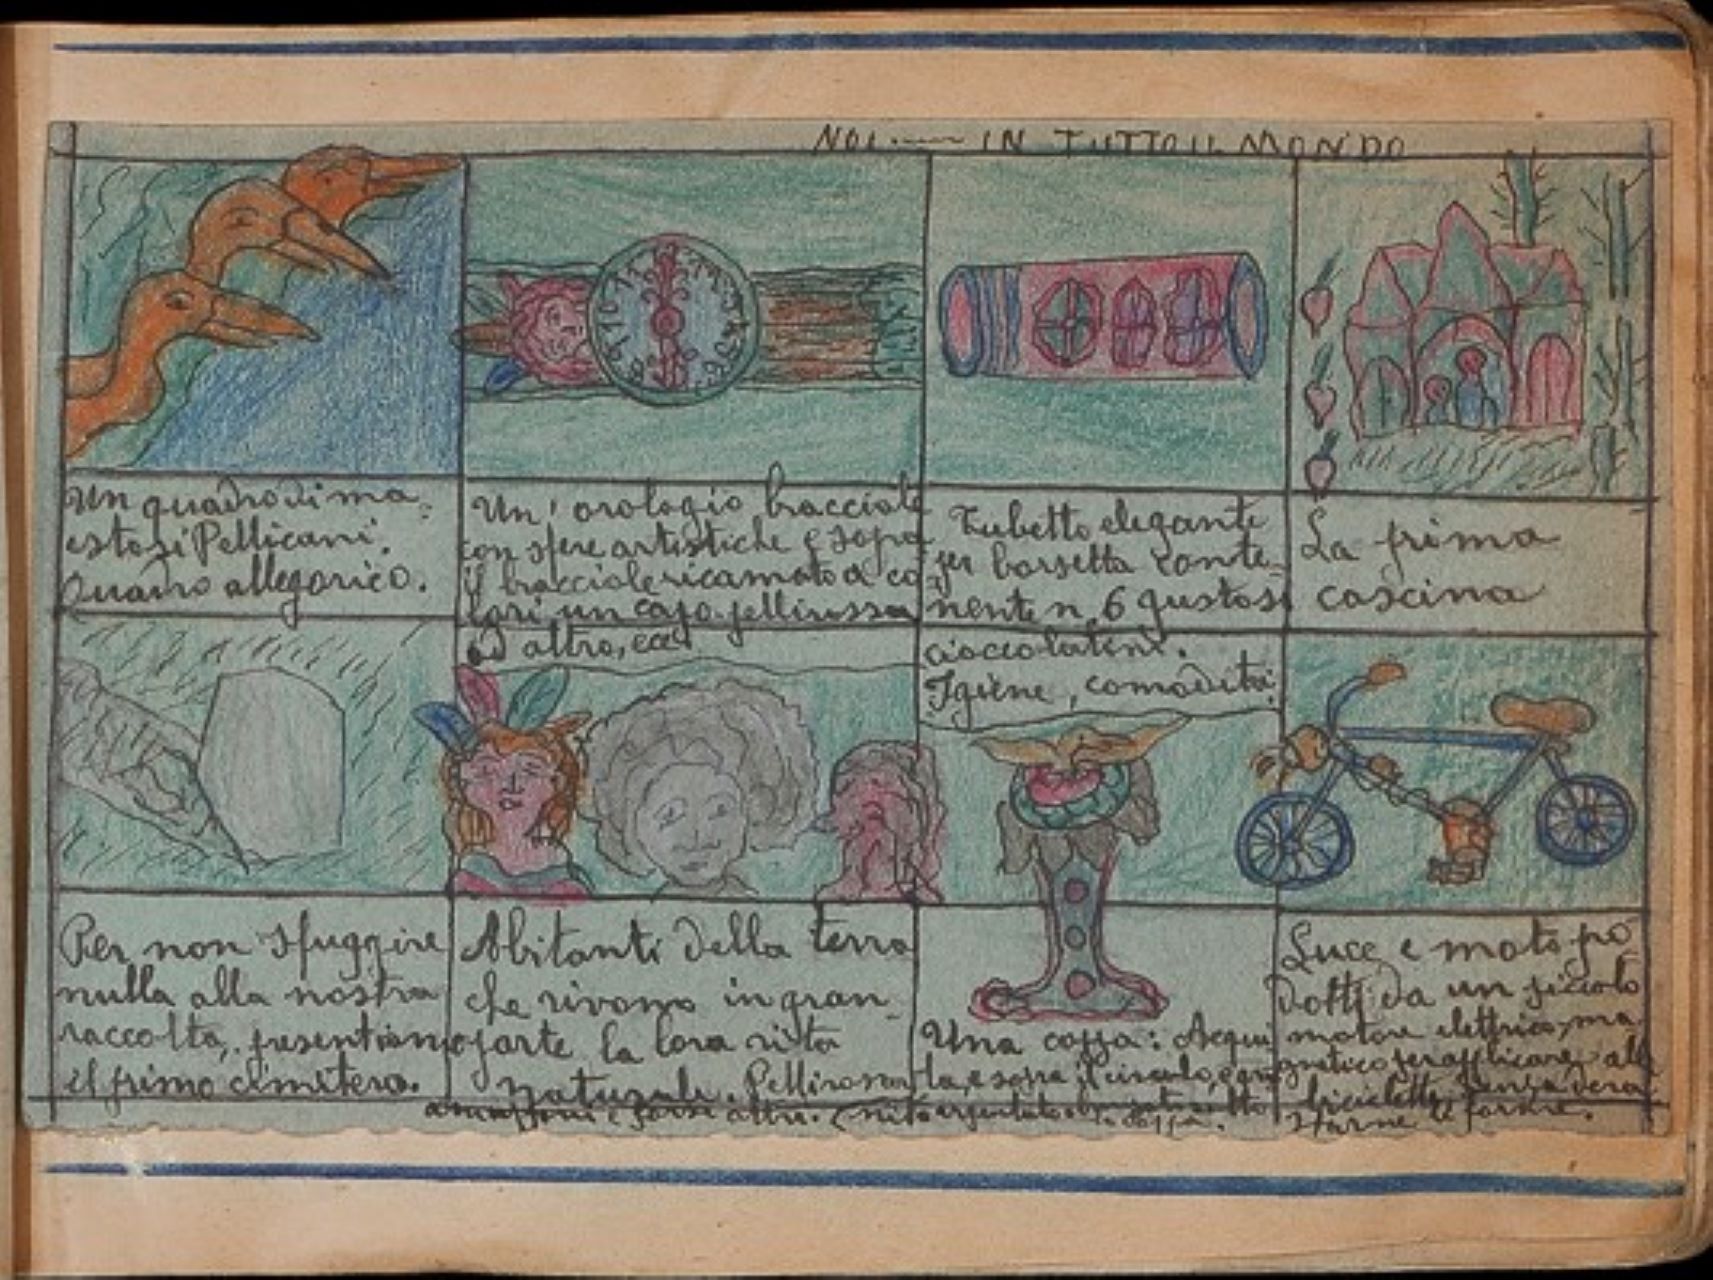 NOI...... IN TUTTO IL MONDO
Un quadro di ma-
estosi Pellicani.
Quadro allegorico.
Un' orologio bracciale
con sfere artistiche e sopra
il bracciale ricamato a co
lori un capo pellirossa
ed altro, ecc.
Tubetto elegante
per borsetta conte-
nente n. 6 gustosi
cioccolatini.
Igiene, comodità.
La prima
cascina
Per non sfuggire
nulla alla nostra
raccolta, presentiamo
il primo cimitero.
Abitanti della terra
che vivono in gran
parte la loro vita
naturale. Pellirosse
e forse altri.
Una coppa: Acqui
la, e sopra il circolo,
coppa.
Luce e moto pro
dotti da un piccolo
motore elettrico, ma
gnetico per applicare alle
biciclette, senza
le forme.